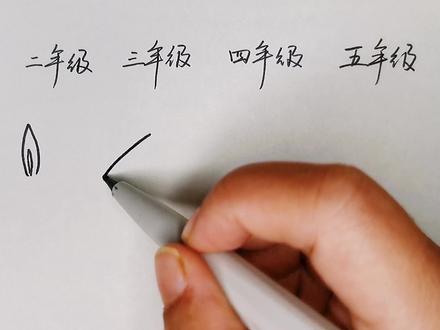 二年级 三年级 四年级 五年级